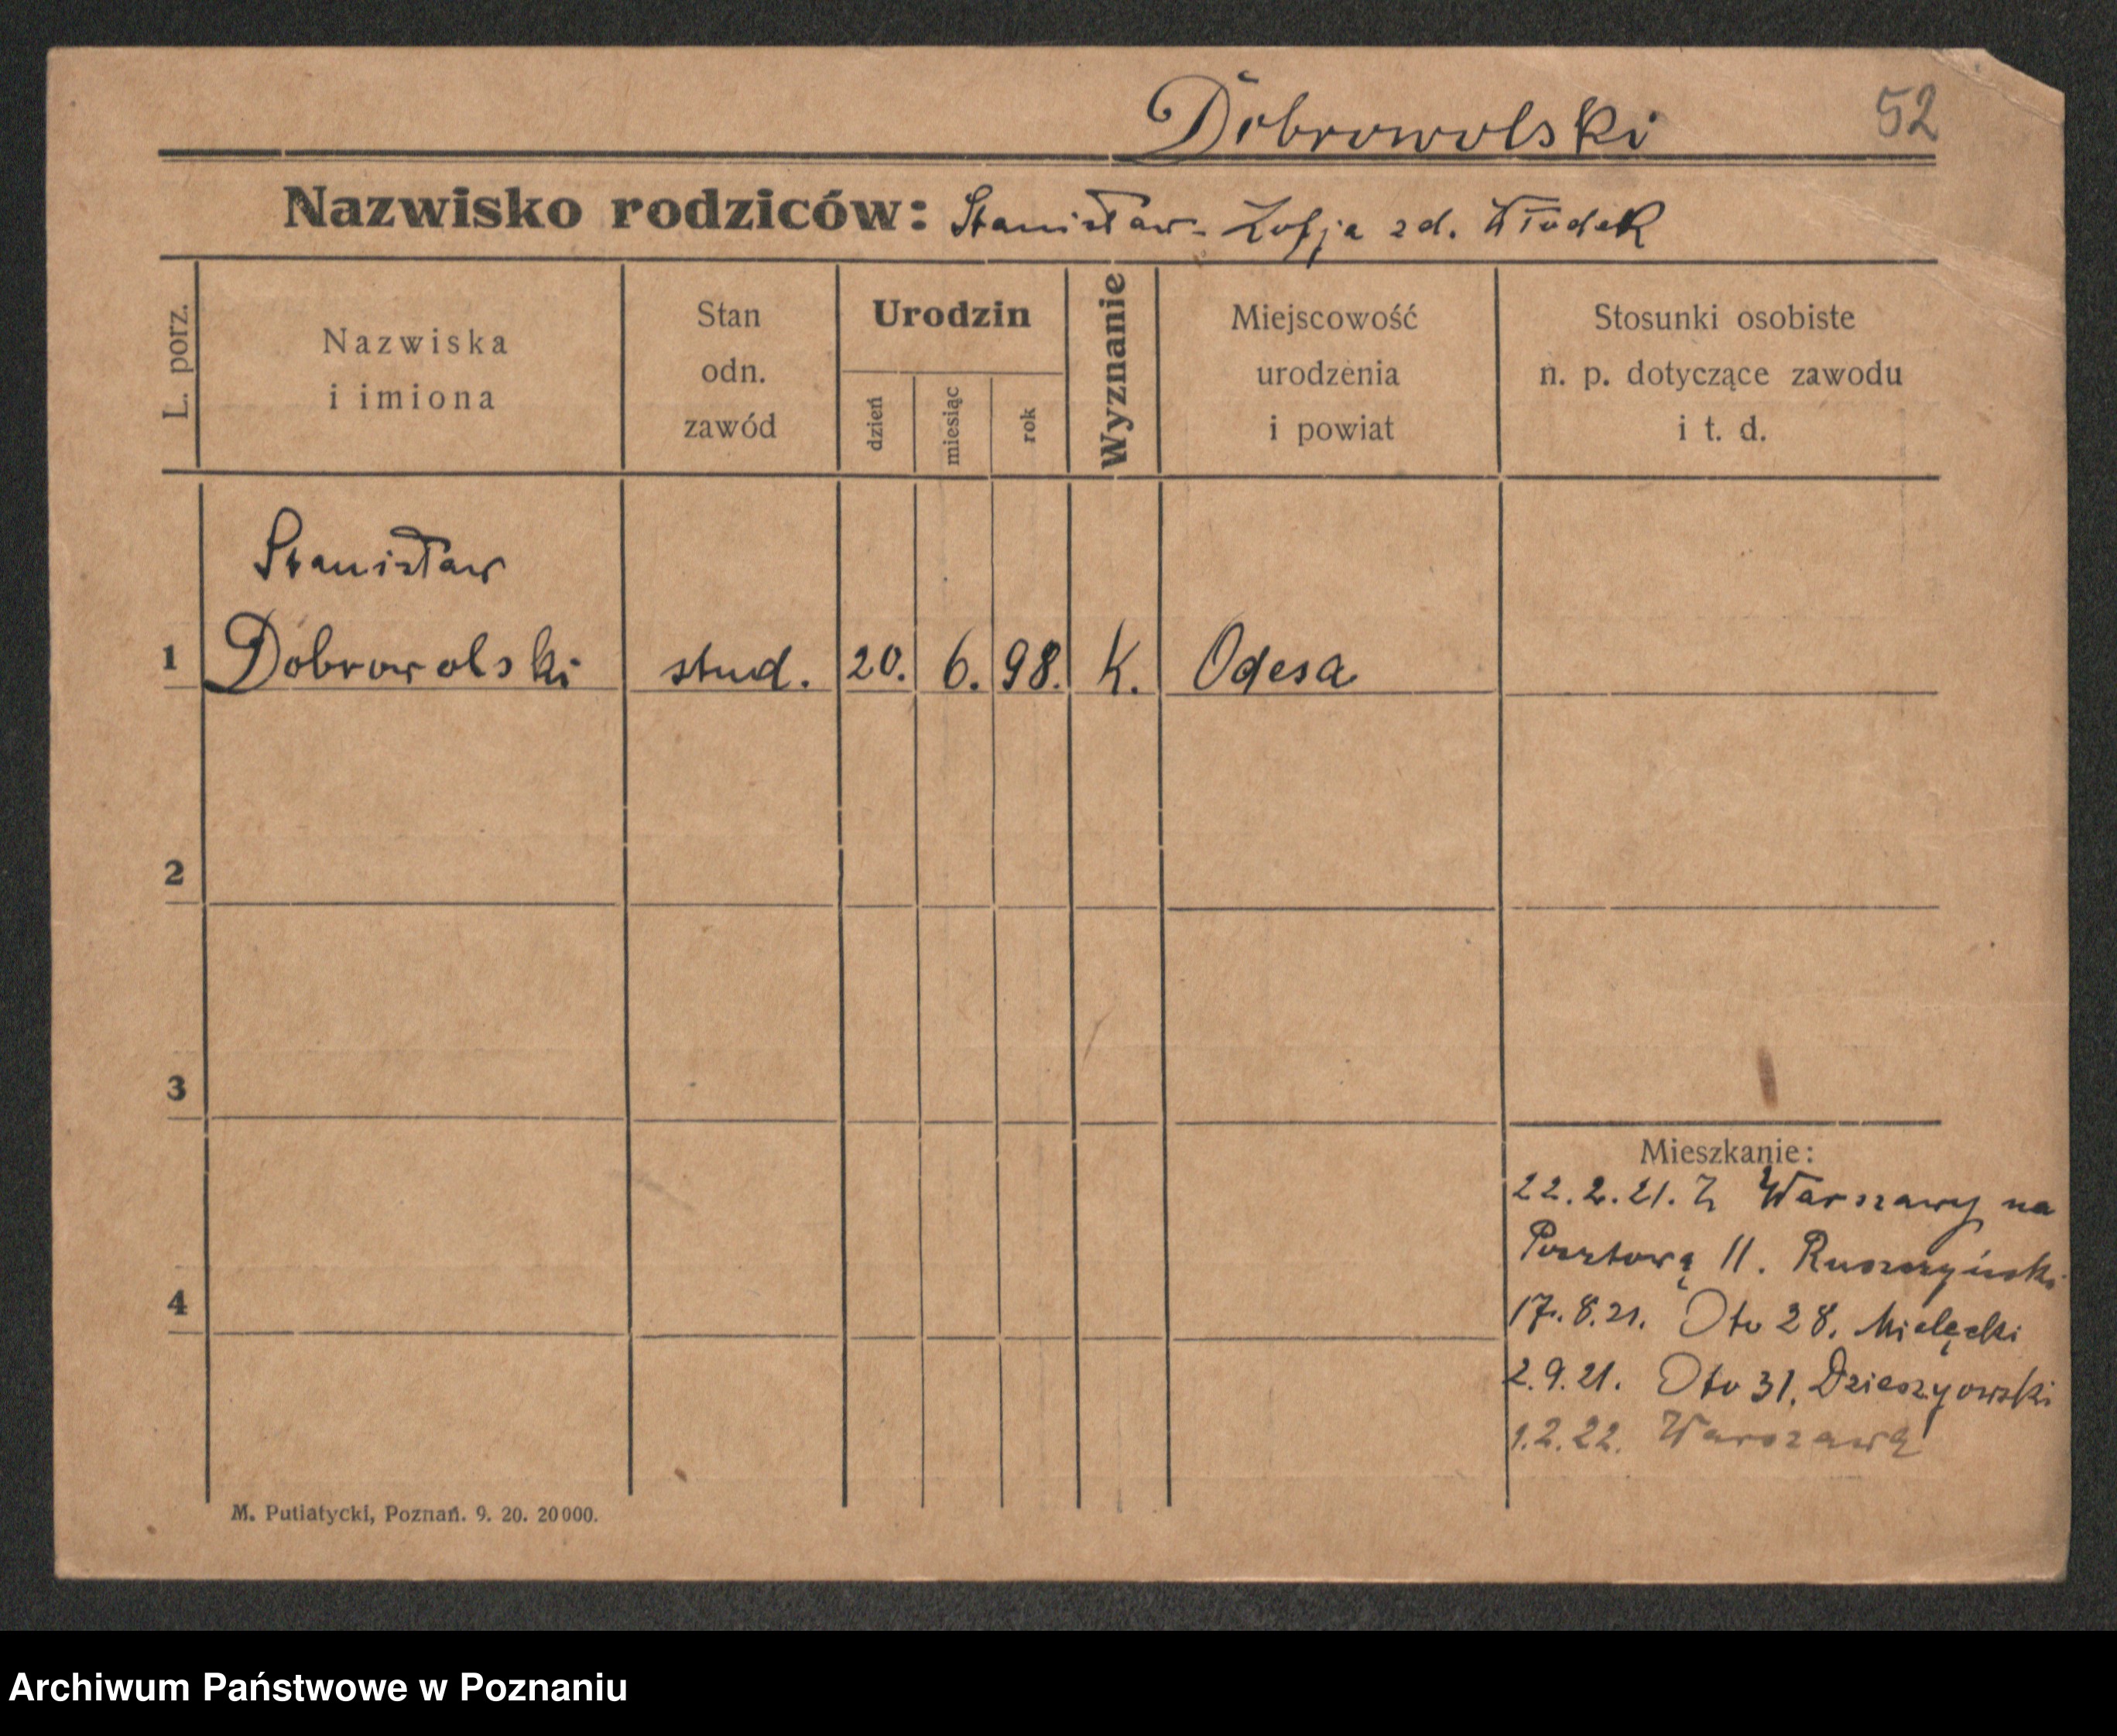 Dobrowolski 52
Nazwisko rodziców: Stanisław - Zofja zd. Włodek
L. porz.
Nazwiska
i imiona
Stan
odn.
zawód
Urodzin
dzień
miesiąc
rok
Wyznanie
Miejscowość
urodzenia
i powiat
Stosunki osobiste
n. p. dotyczące zawodu
i t. d.
Stanisław
1 Dobrowolski stud. 20. 6. 98. K. Odesa
2
3
Mieszkanie:
22.2.21. Z Warszawy na
Pocztową 11. Ruszczyński
4
17.8.21. Oto 28. Mielęcki
2.9.21. Oto 31.
1.2.22. Warszawa
M. Putiatycki, Poznań. 9. 20. 20000.
Archiwum Państwowe w Poznaniu